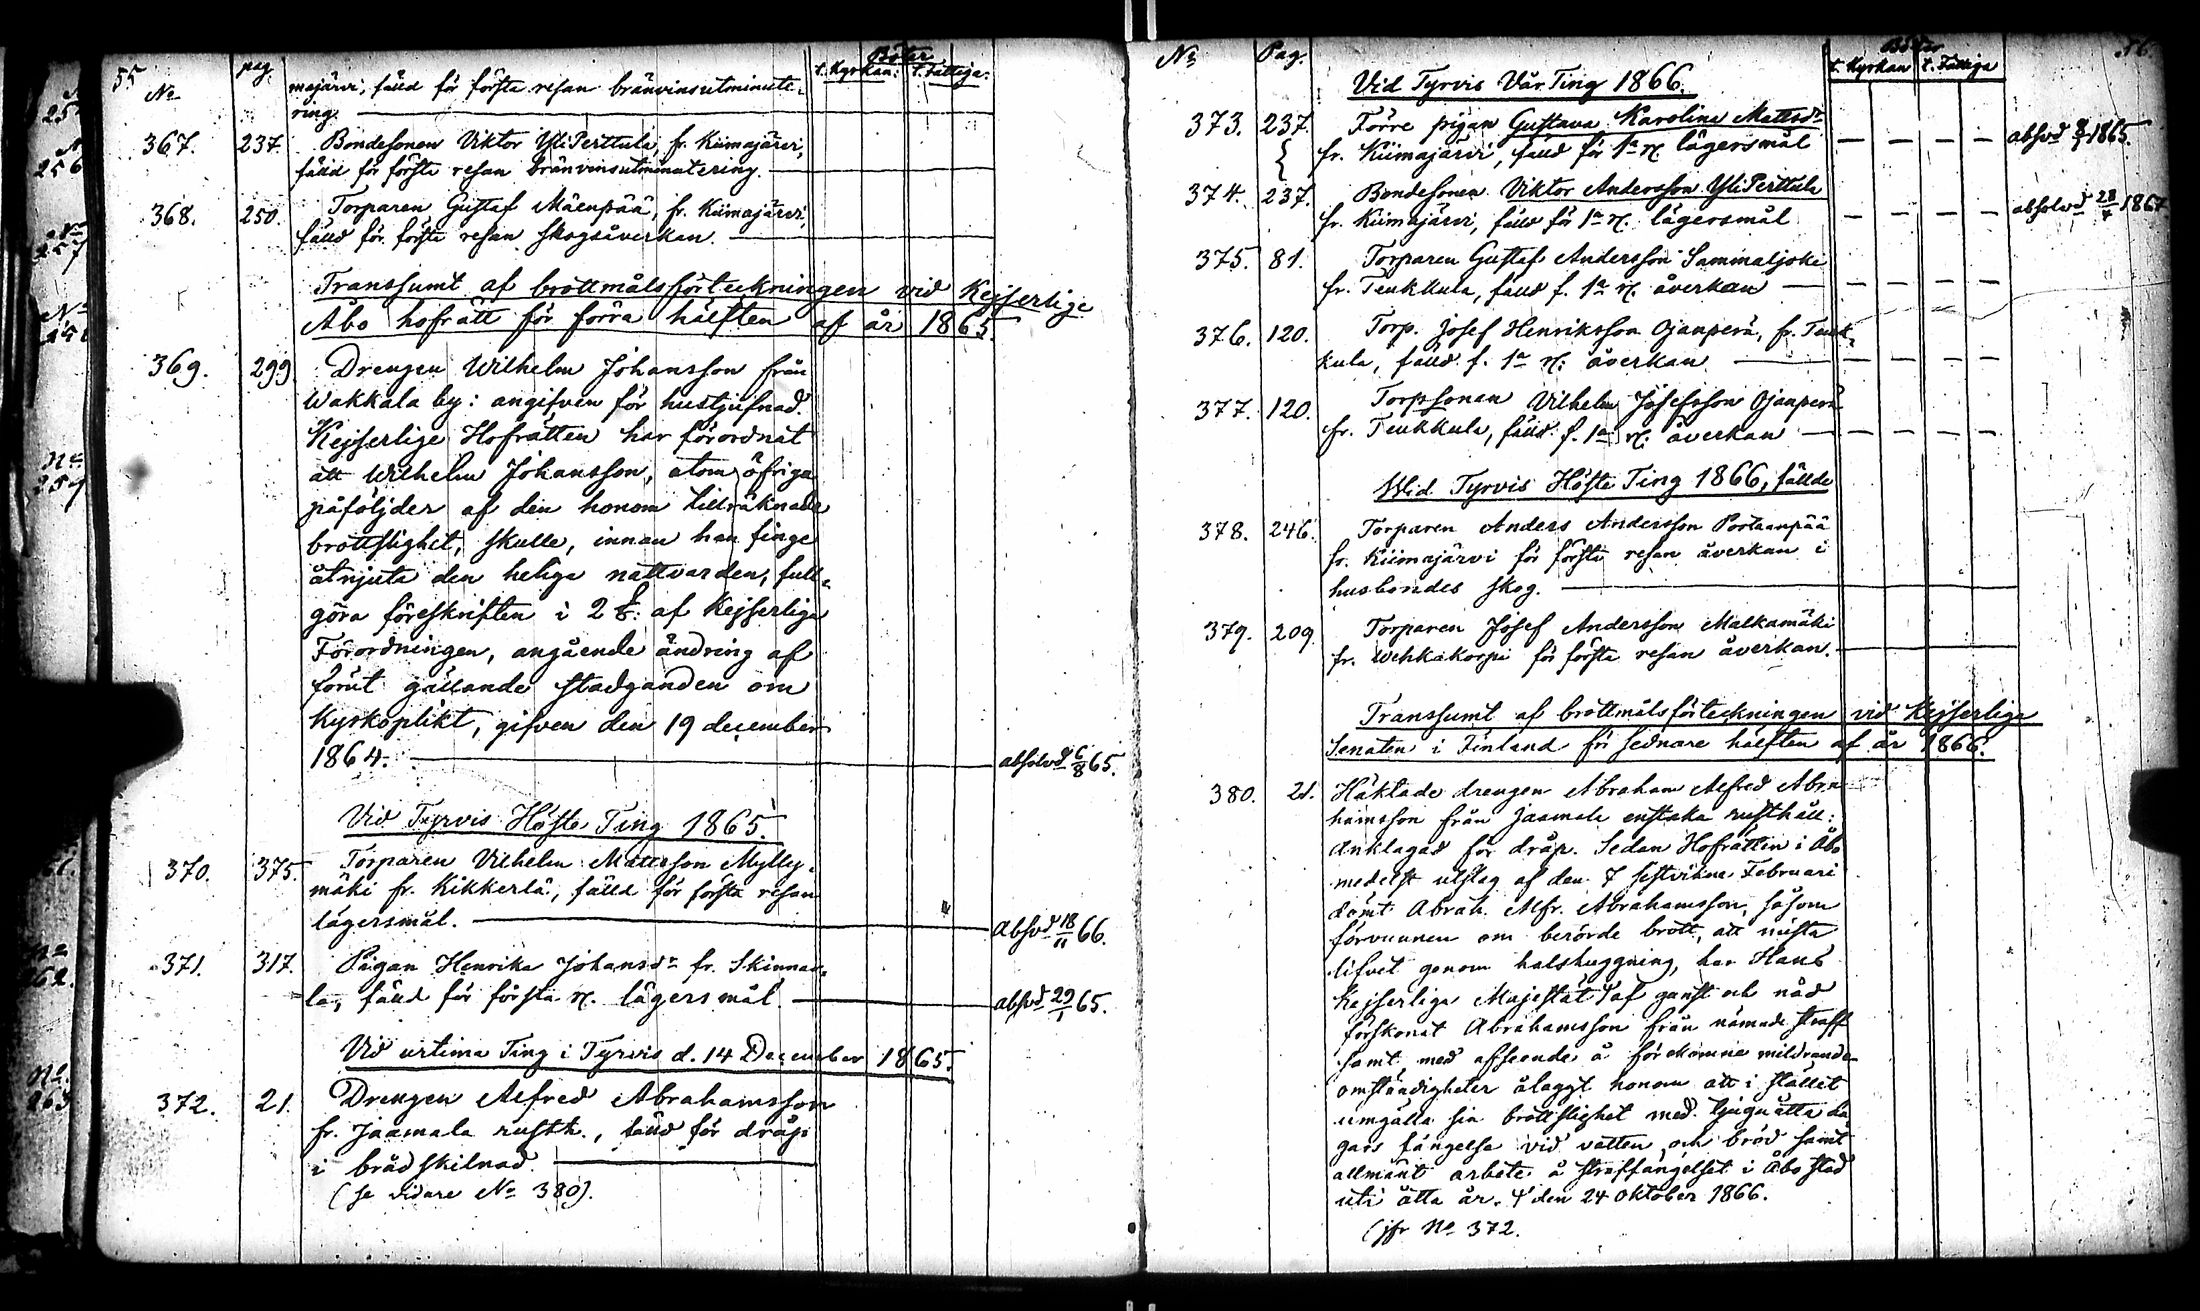 55
No
pag.
Böter
t. Kyrkan: t. Fattiga:
majärvi, fälld för första resan bränvinsutminute-
ring.
367. 237. Bondesonen Viktor YliPerttula, fr. Kiimajärvi,
fälld för första resan bränvinsutminutering.
368. 250. Torparen Gustaf Mäenpää, fr. Kiimajärvi,
fälld för första resan skogsåverkan.
Transsumt af brottmålsförteckningen vid Kejserlige
Åbo hofrätt för förra hälften af år 1865.
369. 299 Drengen Wilhelm Johansson från
Wakkala by: angifven för hustjufnad.
Kejserlige Hofrätten har förordnat
att Wilhelm Johansson, utom öfriga
påföljder af den honom tillräknade
brottslighet, skulle, innan han finge
åtnjuta den heliga nattvarden, full-
göra föreskriften i 2 §: af Kejserliga
Förordningen, angående ändring af
förut gällande stadganden om
Kyrkoplikt, gifven den 19 december
1864. absolvd 6/8 65.
Vid Tyrvis Höste Ting 1865.
370. 375. Torparen Vilhelm Mattsson Mylly-
mäki fr. Kikkerlä, fälld för första resan
lägersmål. Absvd 18/11 66.
371. 317. Pigan Henrika Johansdr fr. Skinnar-
la, fälld för första r. lägersmål. absvd 29/1 65.
Vid urtima Ting i Tyrvis d. 14 December 1865.
372. 21. Drengen Alfred Abrahamsson
fr. Jaamala rusth., fälld för dråp
i brådskilnad.
(se vidare No 380).
No Pag. Böter 56.
t. Kyrkan t. Fattiga
Vid Tyrvis Vår Ting 1866.
373. 237. Förre pigan Gustava Karolina Mattsdr
fr. Kiimajärvi, fälld för 1a r. lägersmål — — — — absvd 1865.
374. 237. Bondesonen Viktor Andersson YliPerttula
fr. Kiimajärvi, fälld för 1a r. lägersmål — — — — absolvd 28/4 1867
375. 81. Torparen Gustaf Andersson Sammaljoki
fr. Teukkula, fälld f. 1a r. åverkan — — — —
376. 120. Torp. Josef Henriksson Ojanperä, fr. Teuk-
kula, fälld f. 1a r. åverkan — — — —
377. 120. Torpsonen Vilhelm Josefsson Ojanperä
fr. Teukkula, fälld f. 1a r. åverkan — — — —
Wid Tyrvis Höste Ting 1866, fällde
378. 246. Torparen Anders Andersson Portaanpää
fr. Kiimajärvi för första resan åverkan i
husbondes skog.
379. 209 Torparen Josef Andersson Malkamäki
fr. Wehkakorpi för första resan åverkan.
Transsumt af brottmålsförteckningen vid Kejserliga
Senaten i Finland för sednare hälften af år 1866.
380. 21. Häktade drengen Abraham Alfred Abra
hamsson från Jaamala enstaka rusthåll:
anklagad för dråp. Sedan Hofrätten i Åbo
medelst utslag af den 7 sistvikne Februari
dömt Abrah. Alfr. Abrahamsson, såsom
förvunnen om berörde brott, att mista
lifvet genom halshuggning, har Hans
Kejserliga Majestät af gunst och nåd
förskonat Abrahamsson från nämnde straff
samt med afseende å förekomne mildrande
omständigheter ålaggt honom att i stället
umgälla sin brottslighet med tjuguåtta da
gars fängelse vid vatten och bröd samt
allmänt arbete å straffängelset i Åbo stad
uti åtta år. den 24 Oktober 1866.
(jfr No 372.